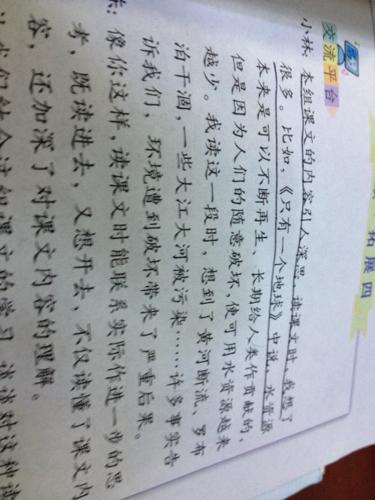 拓展四
交流平台
小林：本组课文的内容引人深思，读课文时，我想了
很多。比如，《只有一个地球》中说，水资源
本来是可以不断再生、长期给人类作贡献的，
但是因为人们的随意破坏，使可用水资源越来
越少。我读这一段时，想到了黄河断流、罗布
泊干涸，一些大江大河被污染……许多事实告
诉我们，环境遭到破坏带来了严重后果。
像你这样，读课文时能联系实际作进一步的思
考，既读进去，又想开去，不仅读懂了课文内
容，还加深了对课文内容的理解。
让我们结合这组课文的学习，谈谈对这种读